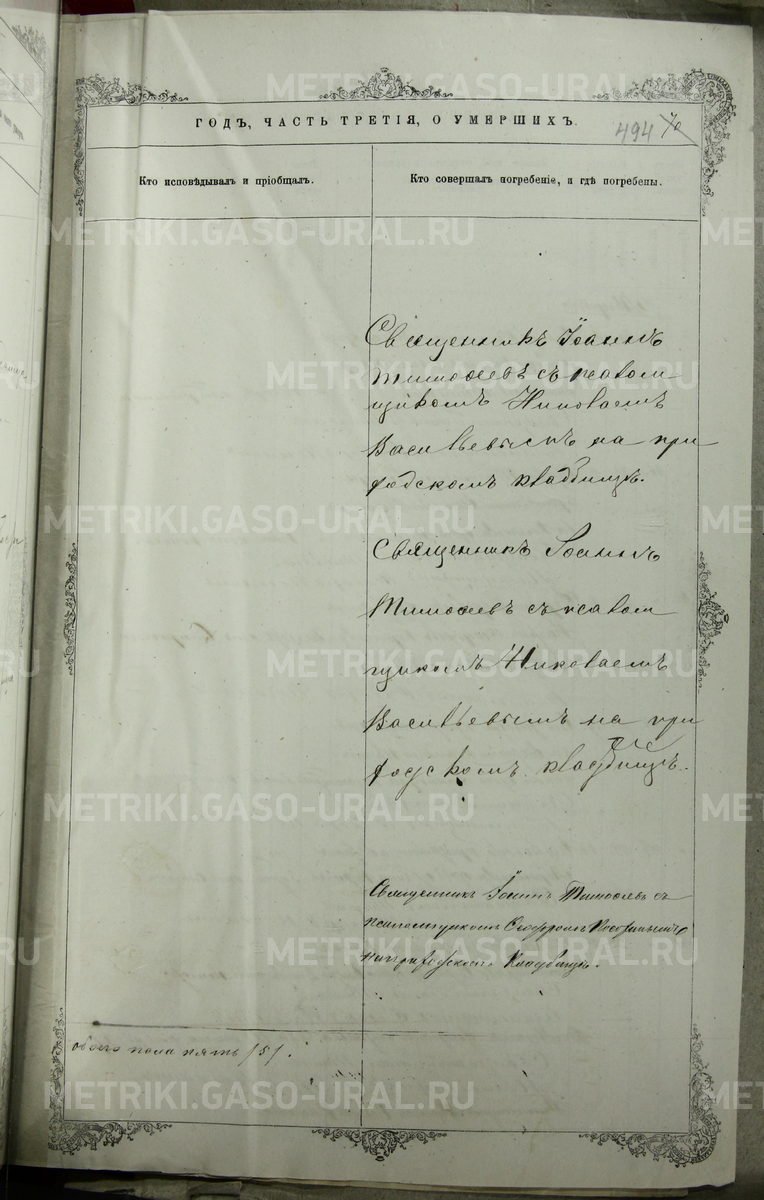 ГОДЪ, ЧАСТЬ ТРЕТІЯ, О УМЕРШИХЪ.
494 70
Кто исповѣдывалъ и пріобщалъ.
Кто совершалъ погребеніе, и гдѣ погребены.
Священникъ Іоаннъ
Тимофеевъ съ псалом
щикомъ Николаемъ
Васильевымъ на при
ходскомъ кладбищѣ.
Священникъ Іоаннъ
Тимофеевъ съ псалом
щикомъ Николаемъ
Васильевымъ на при
ходскомъ кладбищѣ.
Священникъ Іоаннъ Тимофеевъ съ
псаломщикомъ
на приходскомъ кладбищѣ.
обоего пола пять /5/.
METRIKI.GASO-URAL.RU